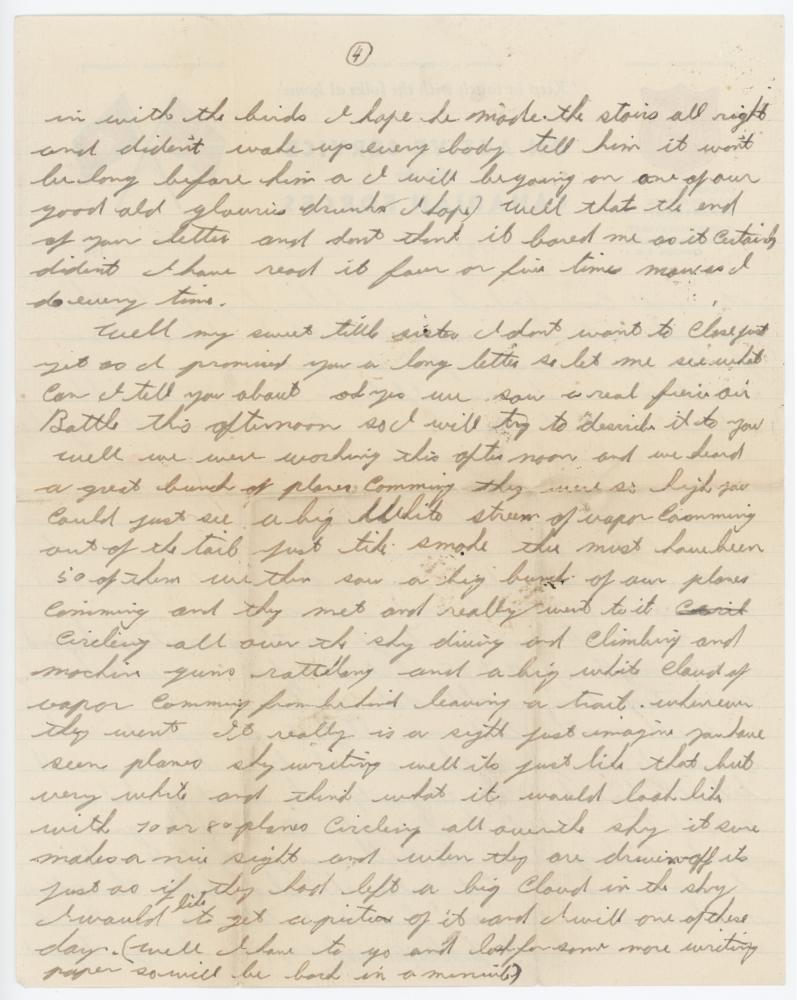 4
in with the birds I hope he made the stairs all right
and dident wake up every body tell him it wont
be long before him a I will be going on one of our
good old glouris drunks (I hope) well that the end
of your letter and dont think it bored me as it Certainly
dident I have read it four or five times more as I
do every time.
Well my sweet little sister I dont want to Close just
yet as I promised you a long letter so let me see what
Can I tell you about oh yes we saw a real fierce air
Battle this afternoon so I will try to describe it to you
well we were working this after noon and we heard
a great bunch of planes Comming they were so high you
Could just see a big White stream of vapor Comming
out of the tail just like smoke there must have been
50 of them we then saw a big bunch of our planes
Comming and they met and really went to it
Circling all over the sky diving and Climbing and
machine guns rattling and a big white Cloud of
vapor Comming from behind leaving a trail wherever
they went It really is a sight just imagine you have
seen planes sky writing well its just like that but
very white and think what it would look like
with 70 or 80 planes Circling all over the sky it sure
makes a nice sight and when they are driven off its
just as if they had left a big Cloud in the sky
I would like to get a picture of it and I will one of these
day. (well I have to go and look for some more writing
paper so will be back in a minute)